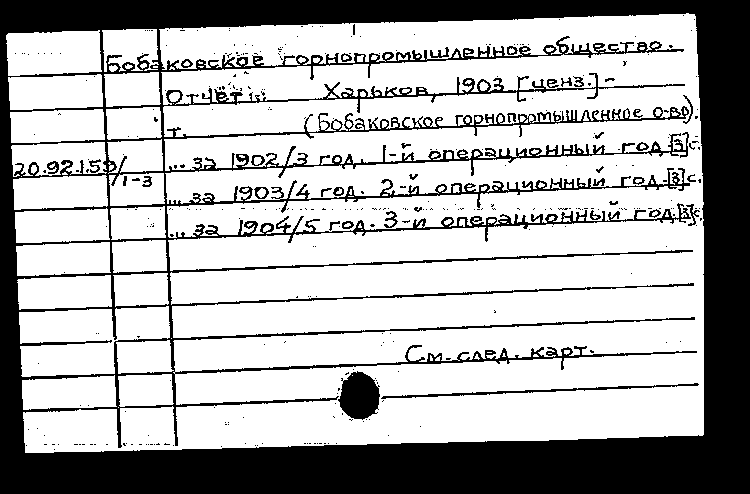 Бобаковское горнопромышленное общество.
Отчёт Харьков, 1903 [ценз.] -
т. (Бобаковское горнопромышленное о-во).
20.92.1.59/1-3 ... за 1902/3 год. 1-й операционный год. [3] с.
... за 1903/4 год. 2-й операционный год. [3] с.
... за 1904/5 год. 3-й операционный год. [3] с.
См. след. карт.